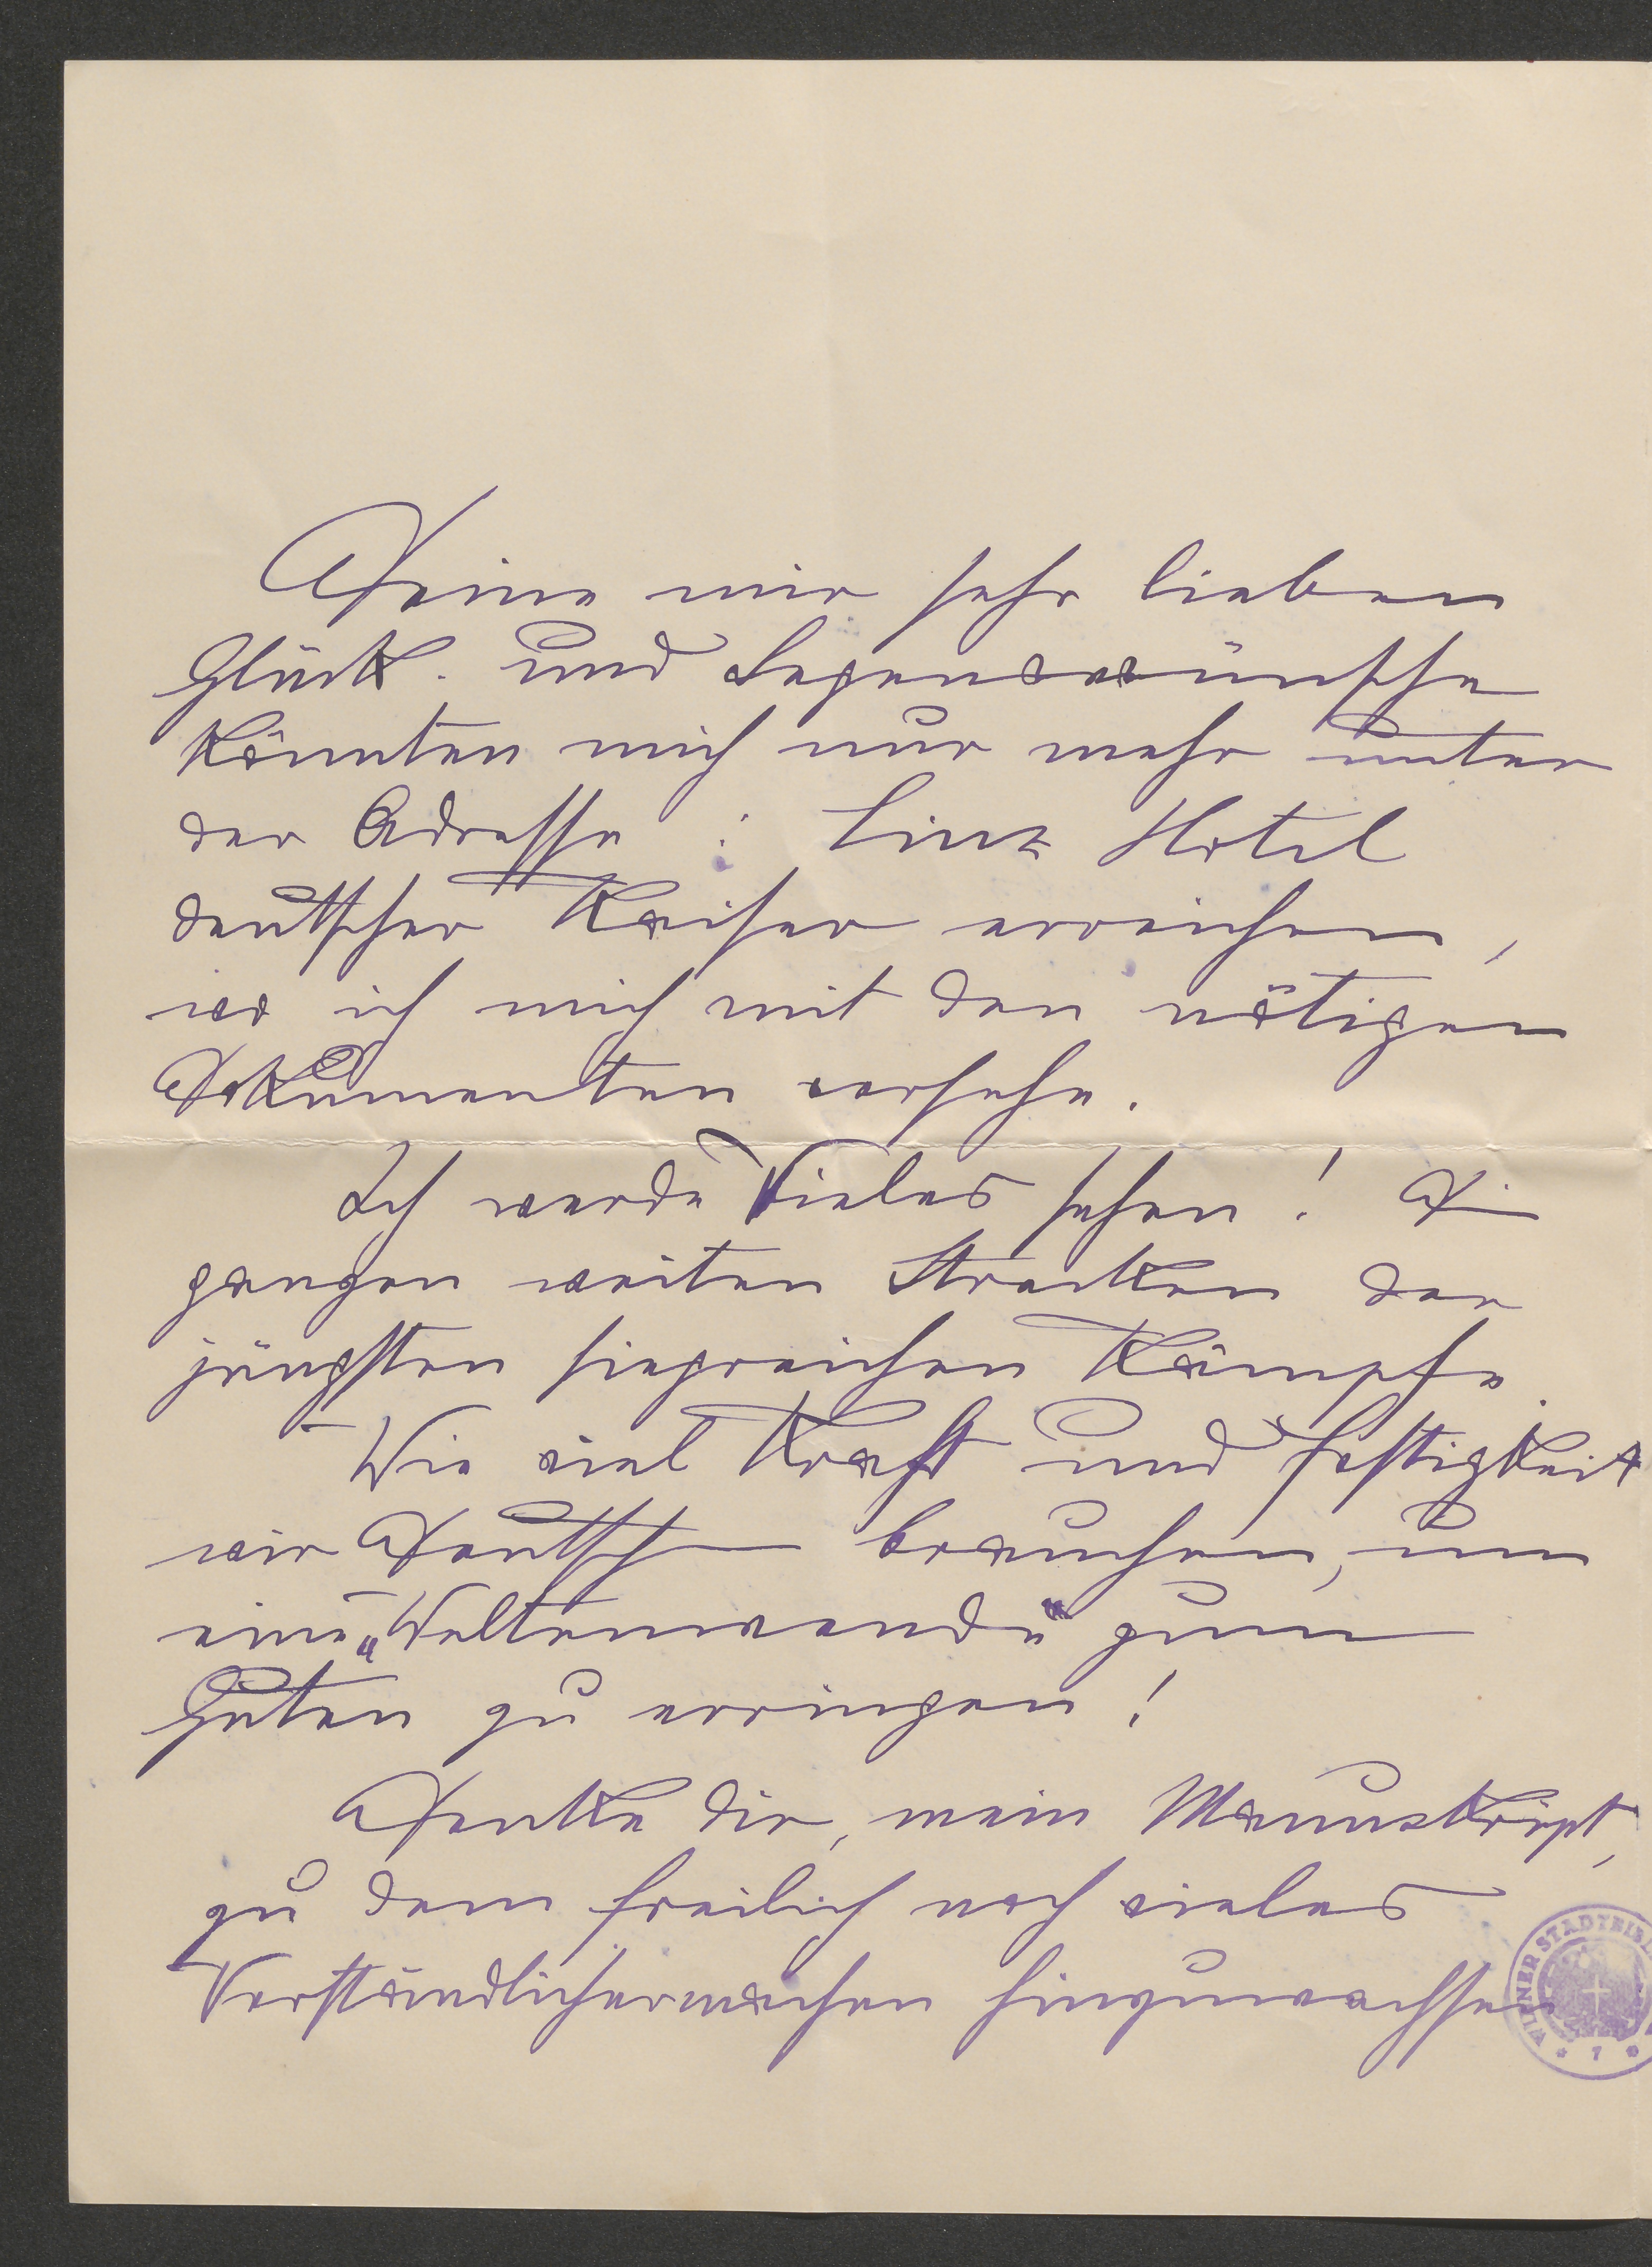 Deine mir sehr lieben
Glück- und Segenswünsche
könnten mich nur mehr unter
der Adresse : Linz Hotel
deutscher Kaiser erreichen,
wo ich mich mit den nötigen
Dokumenten versehe.
Ich werde Vieles sehen! Die
ganzen weiten Strecken der
jüngsten siegreichen Kämpfe.
Wie viel Kraft und Festigkeit
wir Deutschen brauchen, um
eine „Weltenwende“ zum
Guten zu erringen!
Denke dir, mein Manuskript,
zu dem freilich noch vieles
Verständlichermachen hinzuwachsen
WIENER STADTBIB
* 7 *